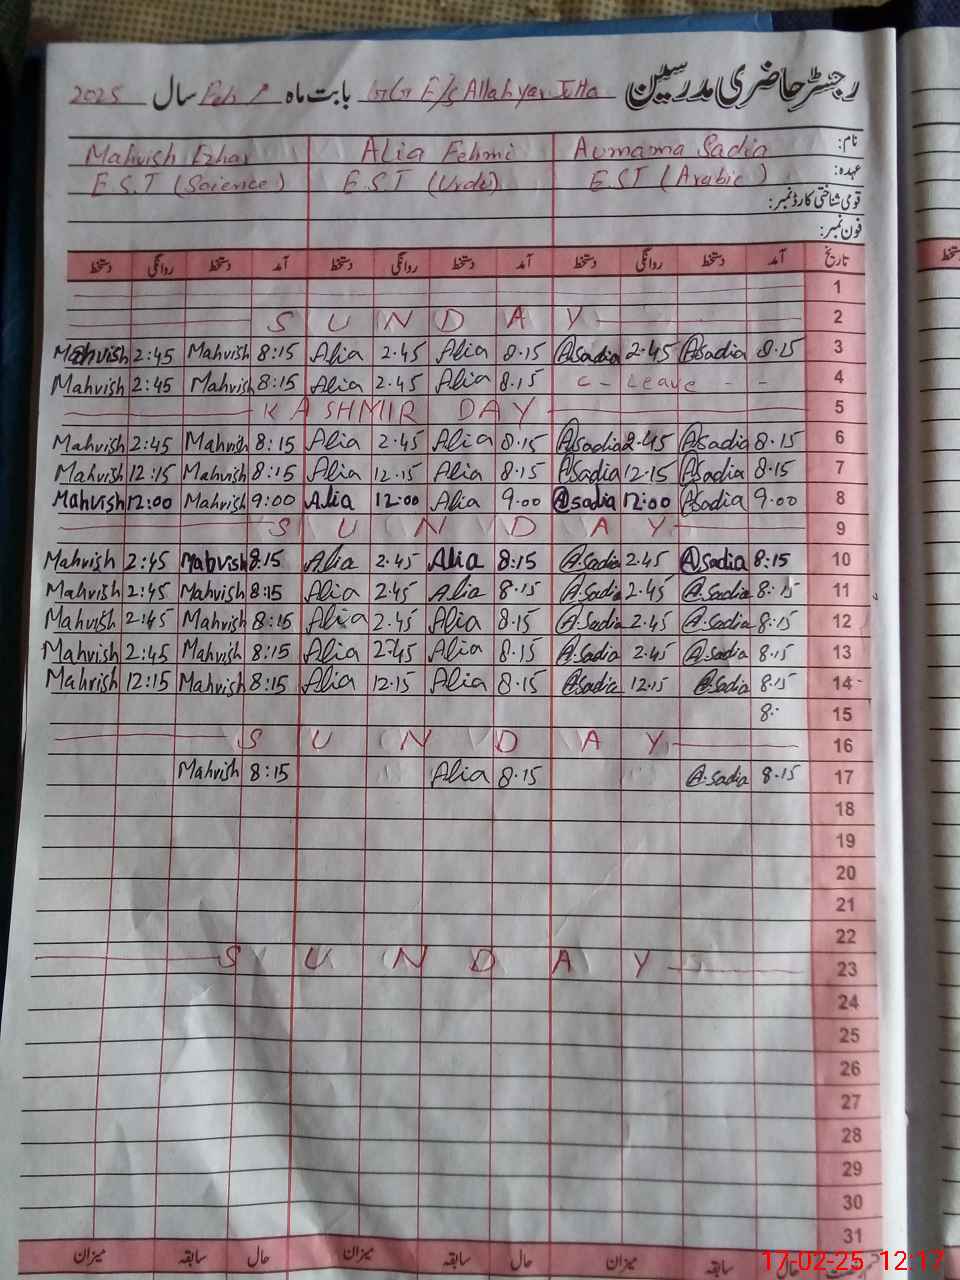 رجسٹر حاضری مدرسین G.G.E/S Allah yar Jutta بابت ماہ Feb سال 2025
نام: Aumama Sadia Alia Fehmi Mahvish Ezhar
عہدہ: EST (Arabic) E.S.T (Urdu) E.S.T (Science)
قومی شناختی کارڈ نمبر:
فون نمبر:
تاریخ آمد دستخط روانگی دستخط آمد دستخط روانگی دستخط آمد دستخط روانگی دستخط
1
2 SUNDAY
3 8.15 A.sadia 2.45 A.sadia 8.15 Alia 2.45 Alia 8:15 Mahvish 2:45 Mahvish
4 C - Leave - - 8.15 Alia 2.45 Alia 8:15 Mahvish 2:45 Mahvish
5 KASHMIR DAY
6 8.15 A.sadia 2.45 A.sadia 8.15 Alia 2.45 Alia 8:15 Mahvish 2:45 Mahvish
7 8.15 A.sadia 12.15 A.sadia 8.15 Alia 12.15 Alia 8:15 Mahvish 12:15 Mahvish
8 9.00 A.sadia 12:00 A.sadia 9.00 Alia 12:00 Alia 9:00 Mahvish 12:00 Mahvish
9 SUNDAY
10 8:15 A.sadia 2.45 A.sadia 8:15 Alia 2.45 Alia 8:15 Mahvish 2:45 Mahvish
11 8.15 A.sadia 2.45 A.sadia 8.15 Alia 2.45 Alia 8:15 Mahvish 2:45 Mahvish
12 8:15 A.sadia 2.45 A.sadia 8.15 Alia 2.45 Alia 8:15 Mahvish 2:45 Mahvish
13 8.15 A.sadia 2.45 A.sadia 8.15 Alia 2.45 Alia 8:15 Mahvish 2:45 Mahvish
14 8.15 A.sadia 12.15 A.sadia 8.15 Alia 12.15 Alia 8:15 Mahvish 12:15 Mahvish
15 8.
16 SUNDAY
17 8.15 A.sadia 8.15 Alia 8:15 Mahvish
18
19
20
21
22
23 SUNDAY
24
25
26
27
28
29
30
31
حال سابقہ میزان حال سابقہ میزان حال سابقہ میزان
17-02-25 12:17